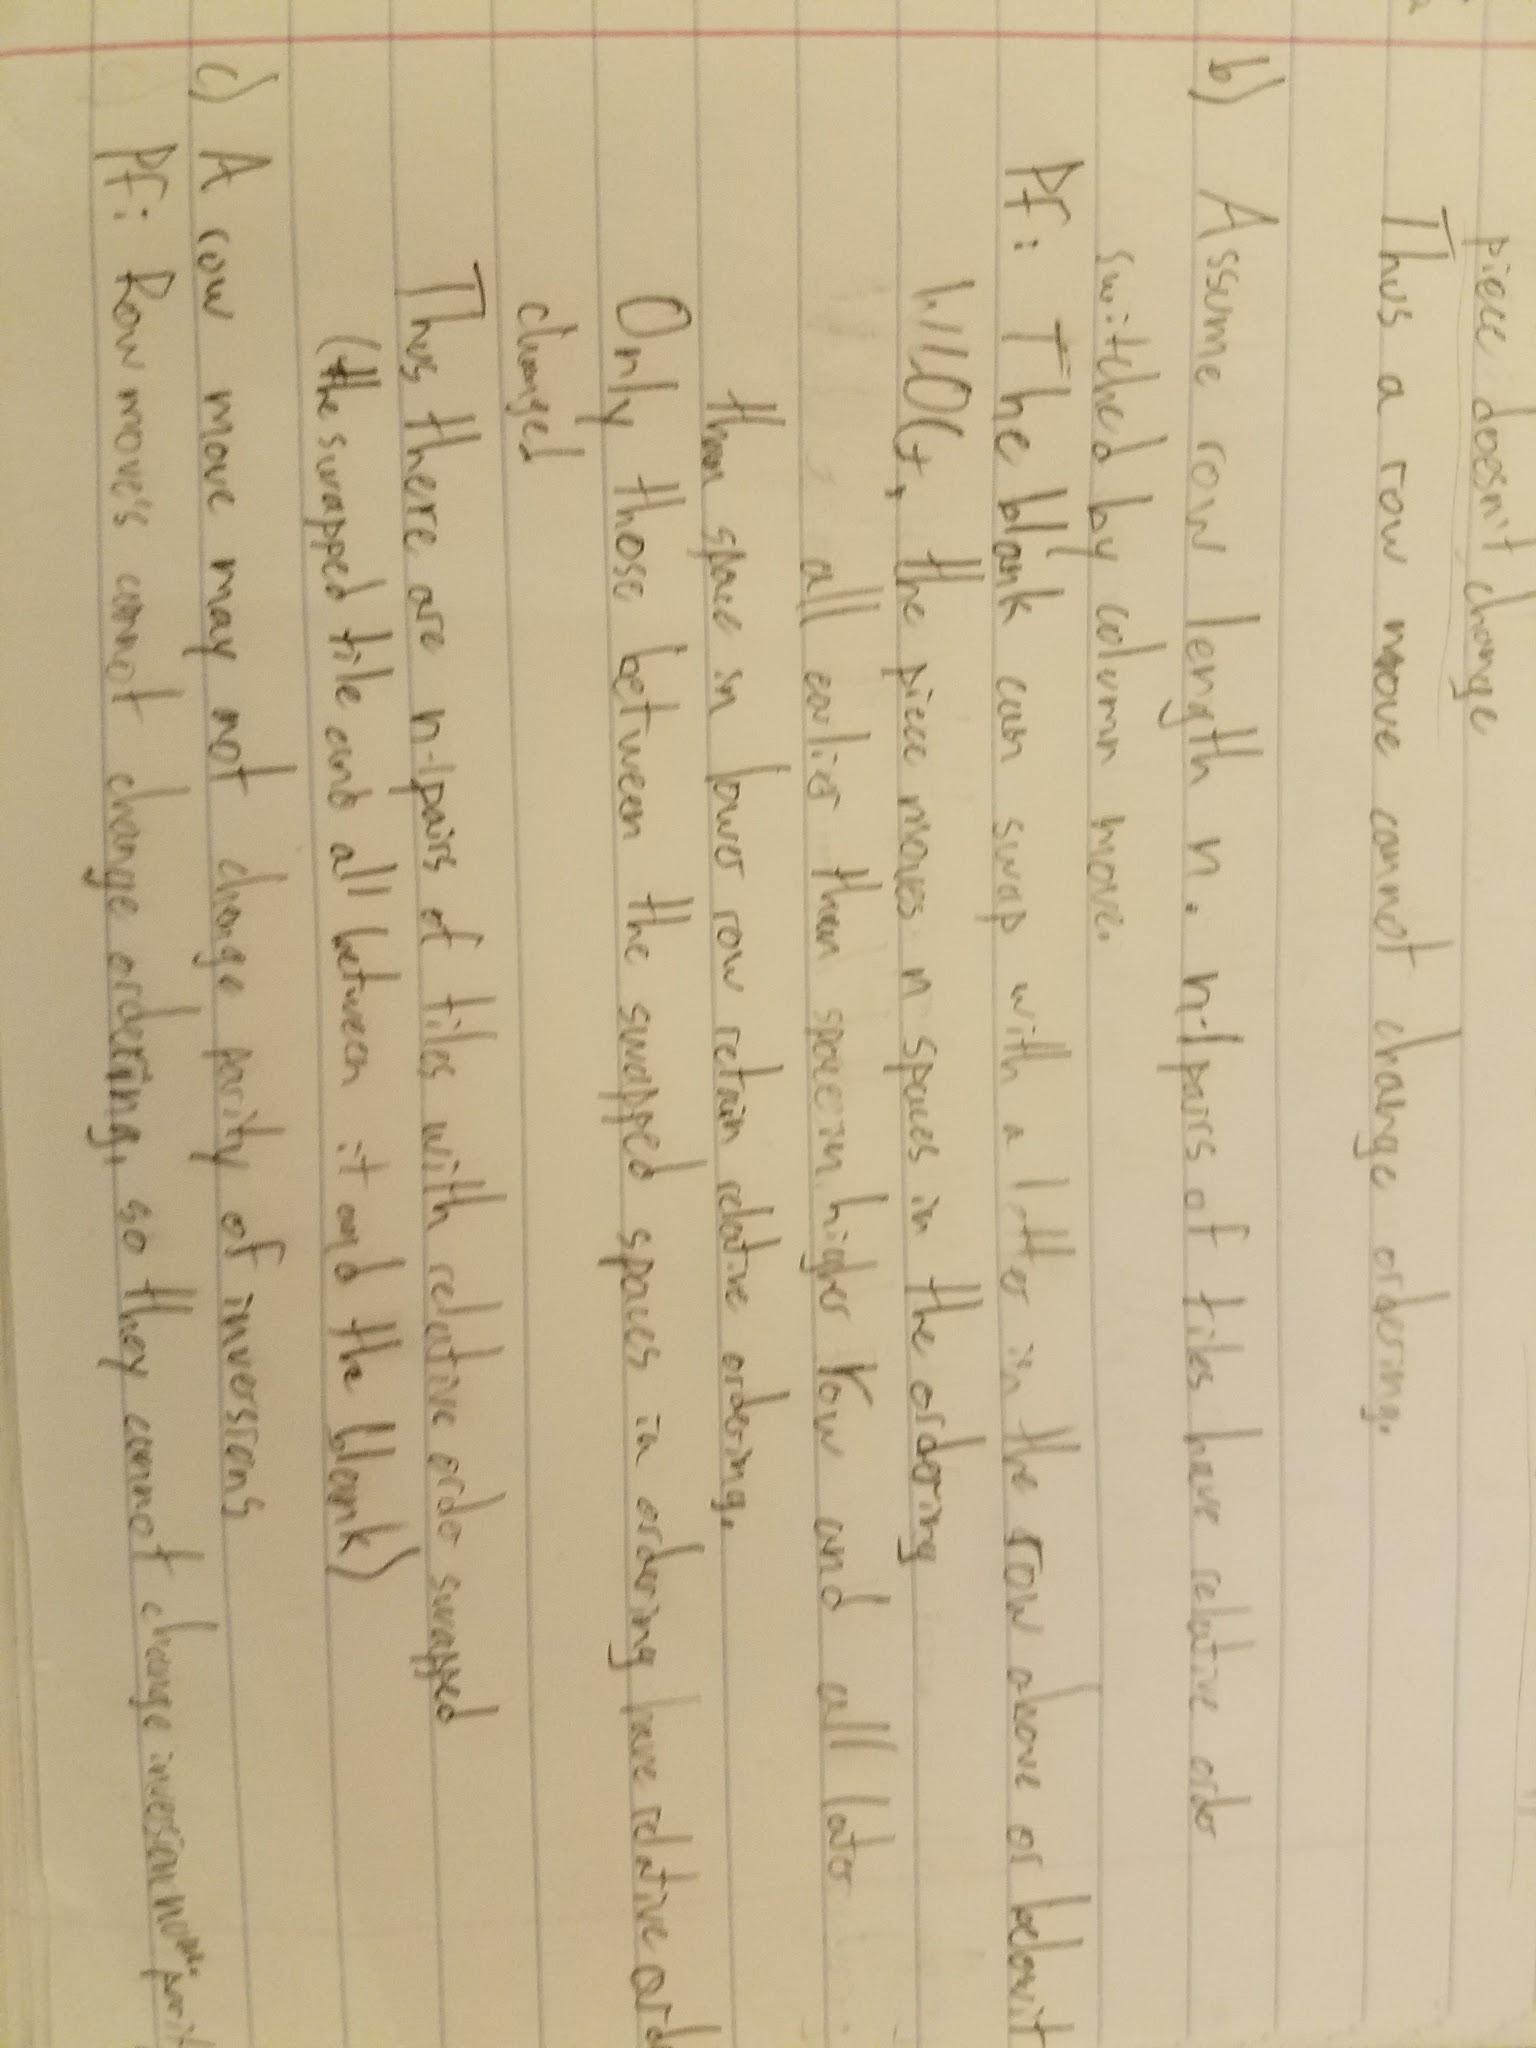 piece doesn't change
Thus a row move cannot change ordering.
b) Assume row length n. n-1 pairs of tiles have relative order
switched by column move.
Pf: The blank can swap with a letter in the row above or below it
WLLOG, the piece moves n spaces in the ordering
all earlier than space in higher row and all later
than space in lower row retain relative ordering.
Only those between the swapped spaces in ordering have relative ord
changed
Thus there are n-1 pairs of tiles with relative order swapped
(the swapped tile and all between it and the blank)
c) A row move may not change parity of inversions
Pf: Row move's cannot change ordering, so they cannot change inversion parit